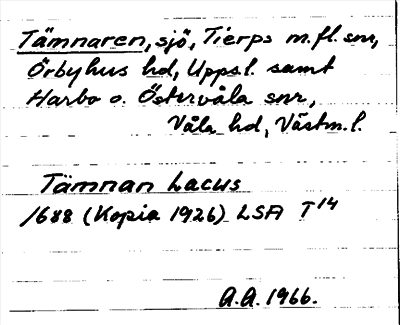 Tämnaren, sjö, Tierps m.fl. snr,
Örbyhus hd, Uppsl. samt
Harbo o. Östervåla snr,
Våla hd, Västm.l.
Tämnan Lacus
1688 (Kopia 1926) LSA T14
A.A. 1966.